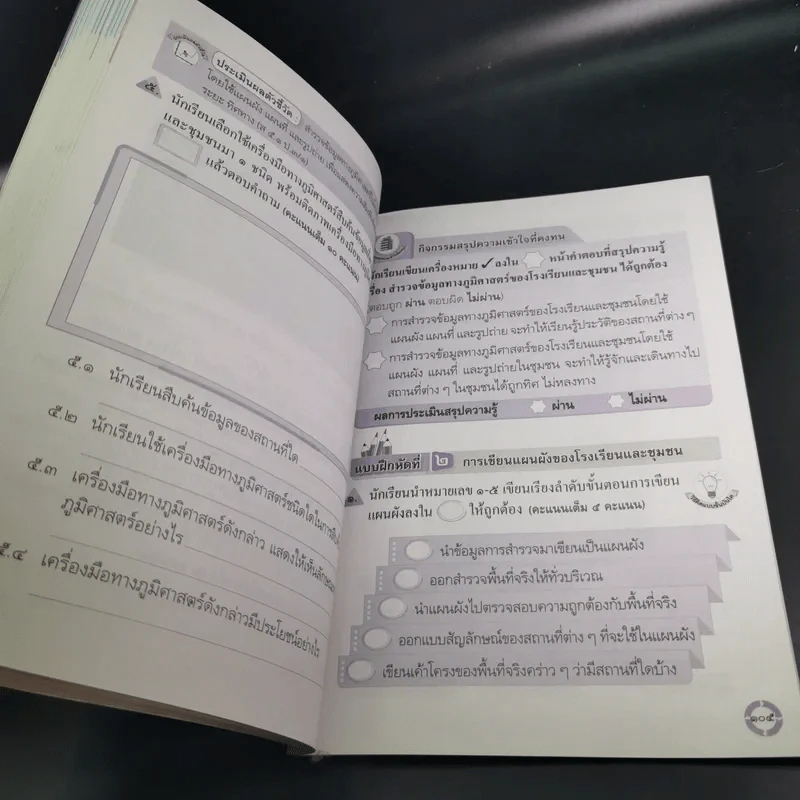 ประเมินผลตัวชี้วัด :
สำรวจข้อมูลทางภูมิศาสตร์
โดยใช้แผนผัง แผนที่ และรูปถ่าย
ระยะ ทิศทาง (ส ๕.๑ ป.๓/๑)
๕. นักเรียนเลือกใช้เครื่องมือทางภูมิศาสตร์สืบค้นข้อมูล
และชุมชนมา ๑ ชนิด พร้อมติดภาพเครื่องมือ
แล้วตอบคำถาม (คะแนนเต็ม ๑๐ คะแนน)
๕.๑ นักเรียนสืบค้นข้อมูลของสถานที่ใด
๕.๒ นักเรียนใช้เครื่องมือทางภูมิศาสตร์ชนิดใดในการ
๕.๓ เครื่องมือทางภูมิศาสตร์ดังกล่าว แสดงให้เห็น
ภูมิศาสตร์อย่างไร
๕.๔ เครื่องมือทางภูมิศาสตร์ดังกล่าวมีประโยชน์อย่างไร
กิจกรรมสรุปความเข้าใจที่คงทน
นักเรียนเขียนเครื่องหมาย ✓ ลงใน หน้าคำตอบที่สรุปความรู้
เรื่อง สำรวจข้อมูลทางภูมิศาสตร์ของโรงเรียนและชุมชน ได้ถูกต้อง
(ตอบถูก ผ่าน ตอบผิด ไม่ผ่าน)
การสำรวจข้อมูลทางภูมิศาสตร์ของโรงเรียนและชุมชนโดยใช้
แผนผัง แผนที่ และรูปถ่าย จะทำให้เรียนรู้ประวัติของสถานที่ต่าง ๆ
การสำรวจข้อมูลทางภูมิศาสตร์ของโรงเรียนและชุมชนโดยใช้
แผนผัง แผนที่ และรูปถ่ายในชุมชน จะทำให้รู้จักและเดินทางไป
สถานที่ต่าง ๆ ในชุมชนได้ถูกทิศ ไม่หลงทาง
ผลการประเมินสรุปความรู้ ผ่าน ไม่ผ่าน
แบบฝึกหัดที่ ๒ การเขียนแผนผังของโรงเรียนและชุมชน
๑. นักเรียนนำหมายเลข ๑-๕ เขียนเรียงลำดับขั้นตอนการเขียน
แผนผังลงใน ให้ถูกต้อง (คะแนนเต็ม ๕ คะแนน)
นำข้อมูลการสำรวจมาเขียนเป็นแผนผัง
ออกสำรวจพื้นที่จริงให้ทั่วบริเวณ
นำแผนผังไปตรวจสอบความถูกต้องกับพื้นที่จริง
ออกแบบสัญลักษณ์ของสถานที่ต่าง ๆ ที่จะใช้ในแผนผัง
เขียนเค้าโครงของพื้นที่จริงคร่าว ๆ ว่ามีสถานที่ใดบ้าง
๑๐๕